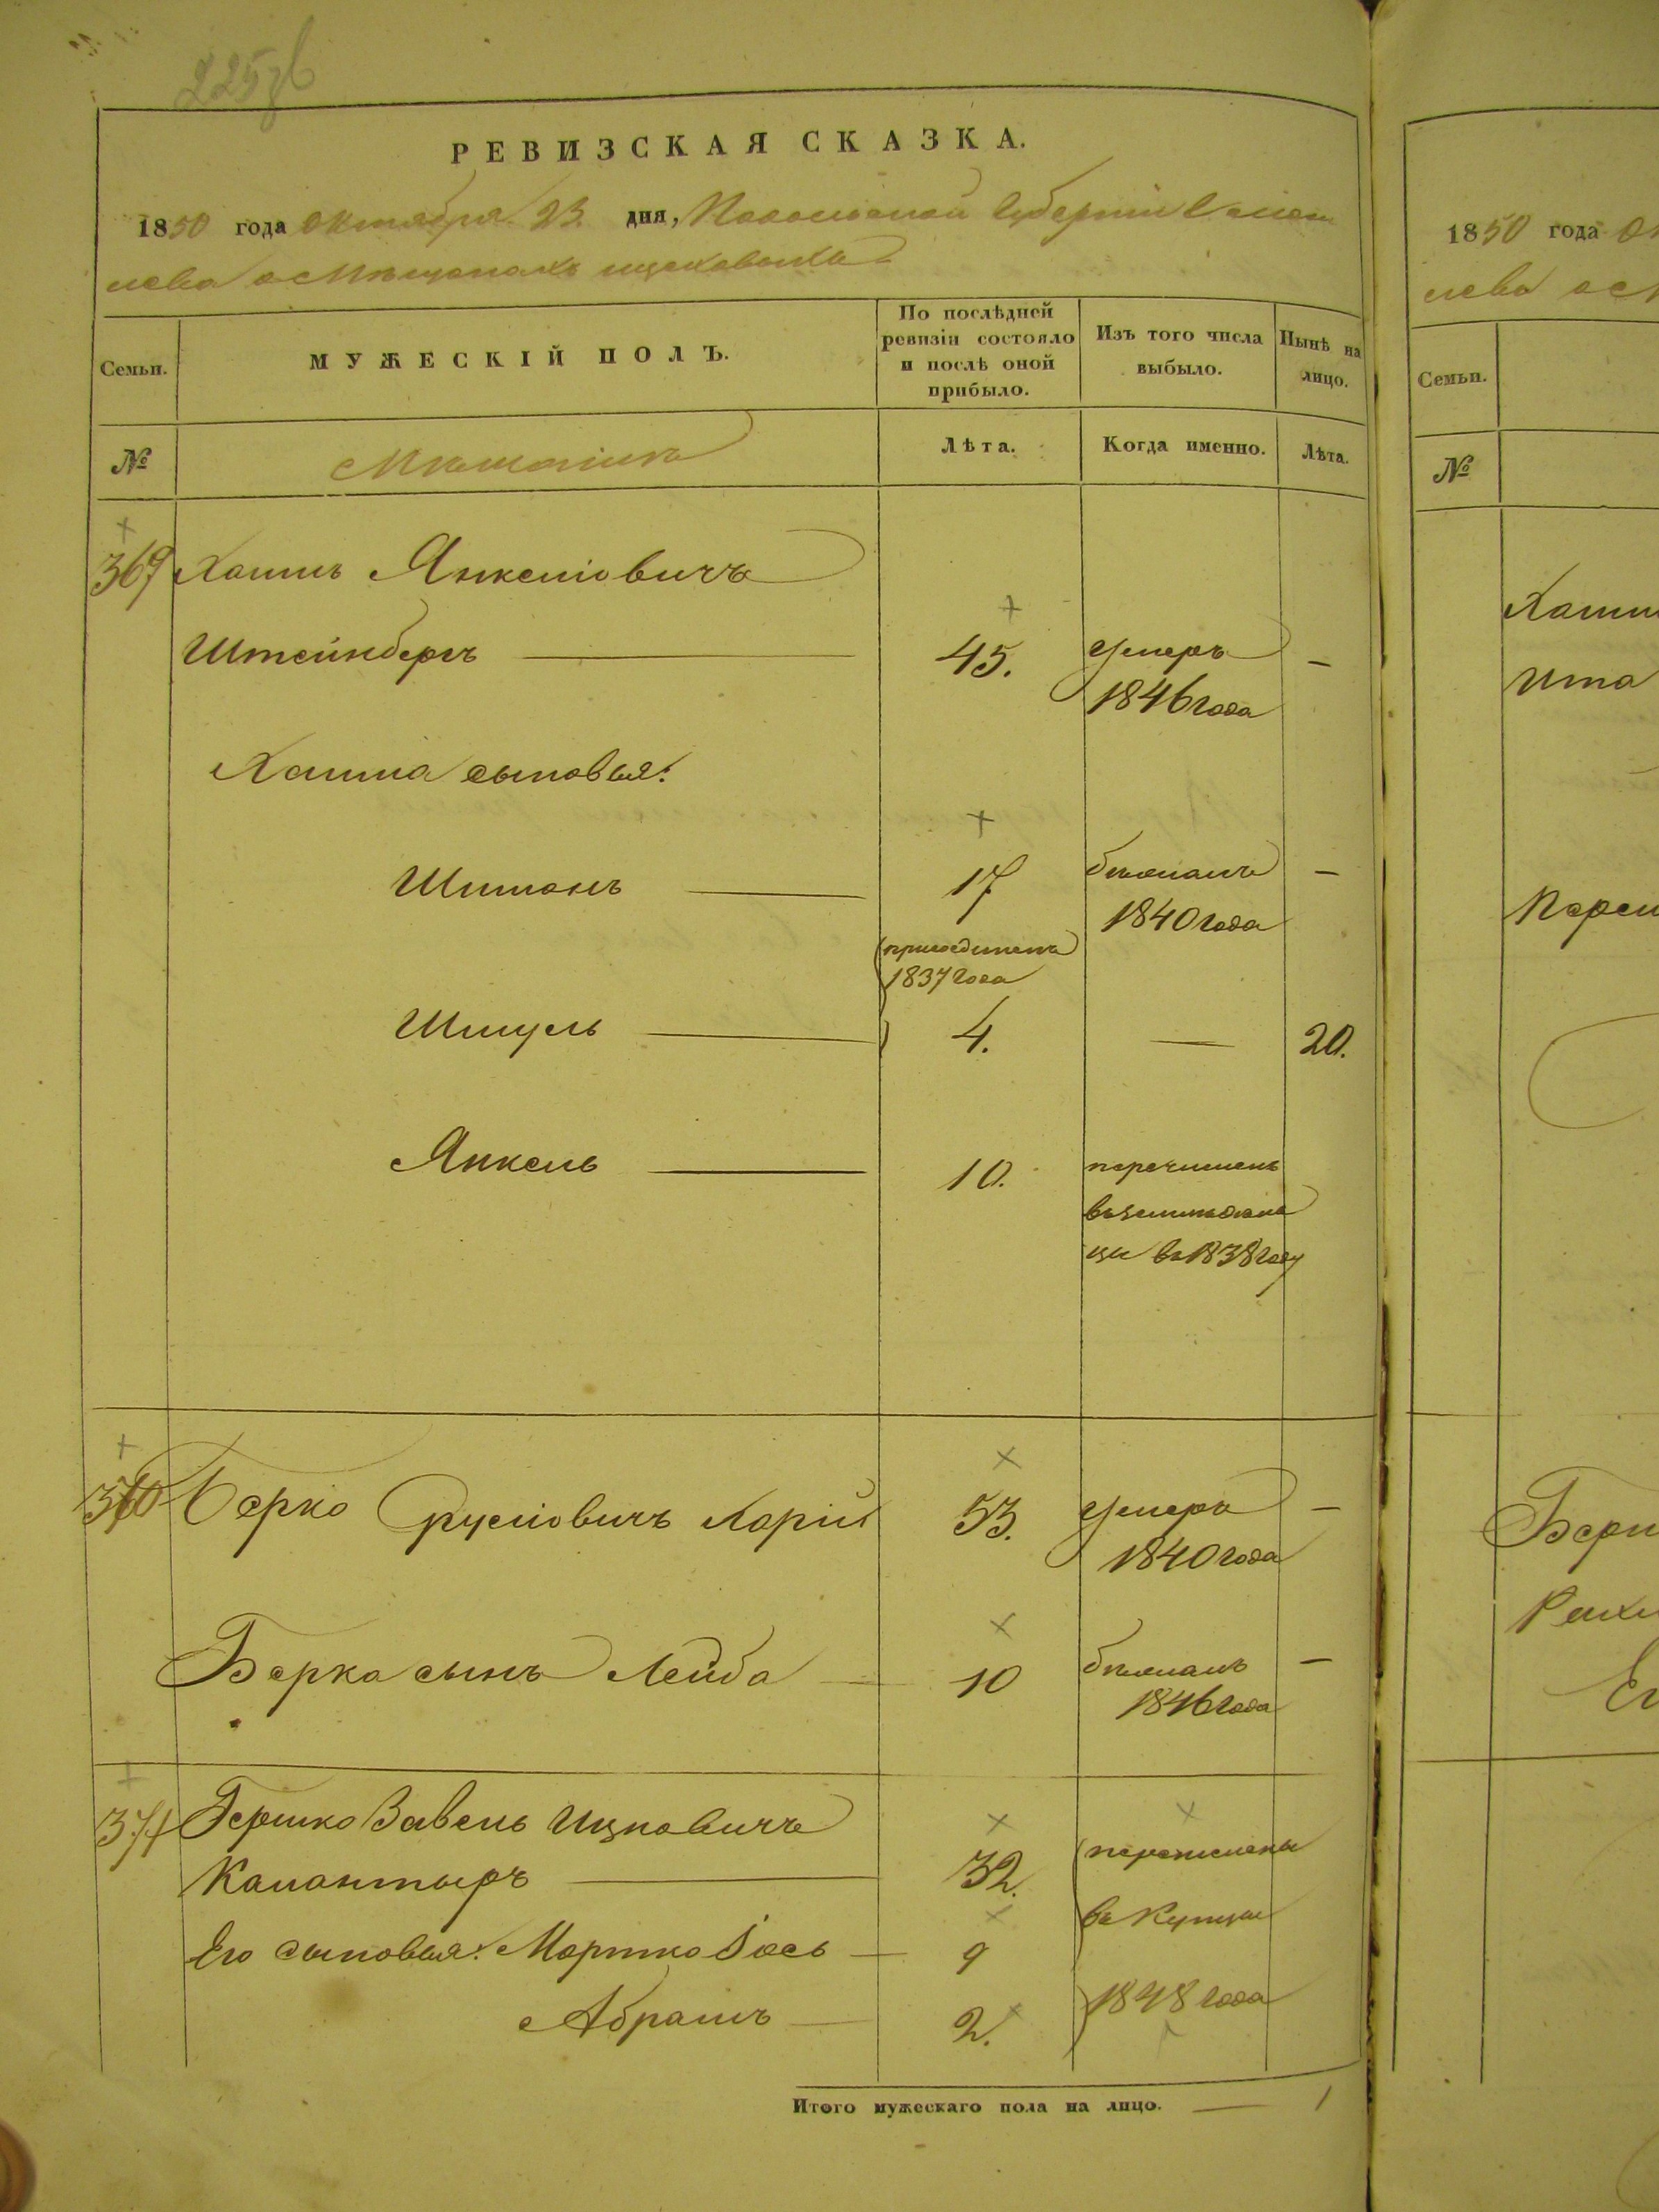 225 об
РЕВИЗСКАЯ СКАЗКА.
1850 года Октября 23 дня, Подольской Губернии
о Мещанах
Семьи.
МУЖЕСКІЙ ПОЛЪ.
По послѣдней ревизіи состояло и послѣ оной прибыло.
Изъ того числа выбыло.
Нынѣ на лицо.
№
Лѣта.
Когда именно.
Лѣта.
369 Хаимъ Янкеліовичъ
Штейнбергъ 45. умеръ –
1846 года
Хаима сыновья:
Шимонъ 17 бѣжалъ –
1840 года
присоединенъ
1837 года
Шмуль 4. — 20.
Янкель 10. перечисленъ
въ земледѣль
цы въ 1838 году
370 Берко Сруліовичъ 53. умеръ –
1840 года
Берка сынъ Лейба 10 бѣжалъ –
1846 года
371 Гершко Вавель Ицковичъ
32. перечислены
Его сыновья: Мортко Іось 9 въ Купцы
Абрамъ 2. 1848 года
Итого мужескаго пола на лицо. — 1
1850 года
Семьи.
№
Хаим
Ита